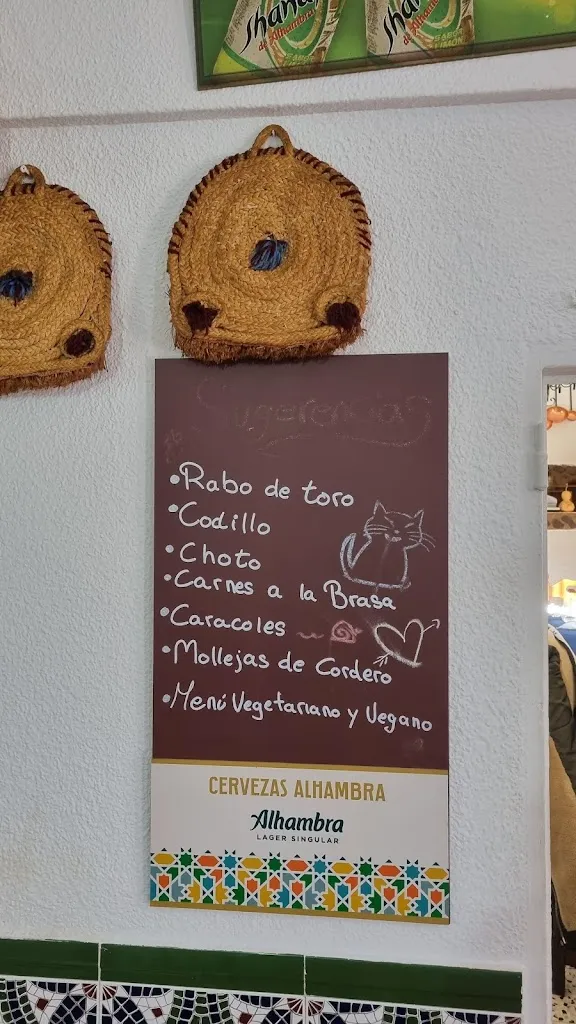 Shandy
de Alhambra
Shandy
de Alhambra
SABOR
LIMÓN
Sugerencias
•Rabo de toro
•Codillo
•Choto
•Carnes a la Brasa
•Caracoles
•Mollejas de Cordero
•Menú Vegetariano y Vegano
CERVEZAS ALHAMBRA
Alhambra
LAGER SINGULAR